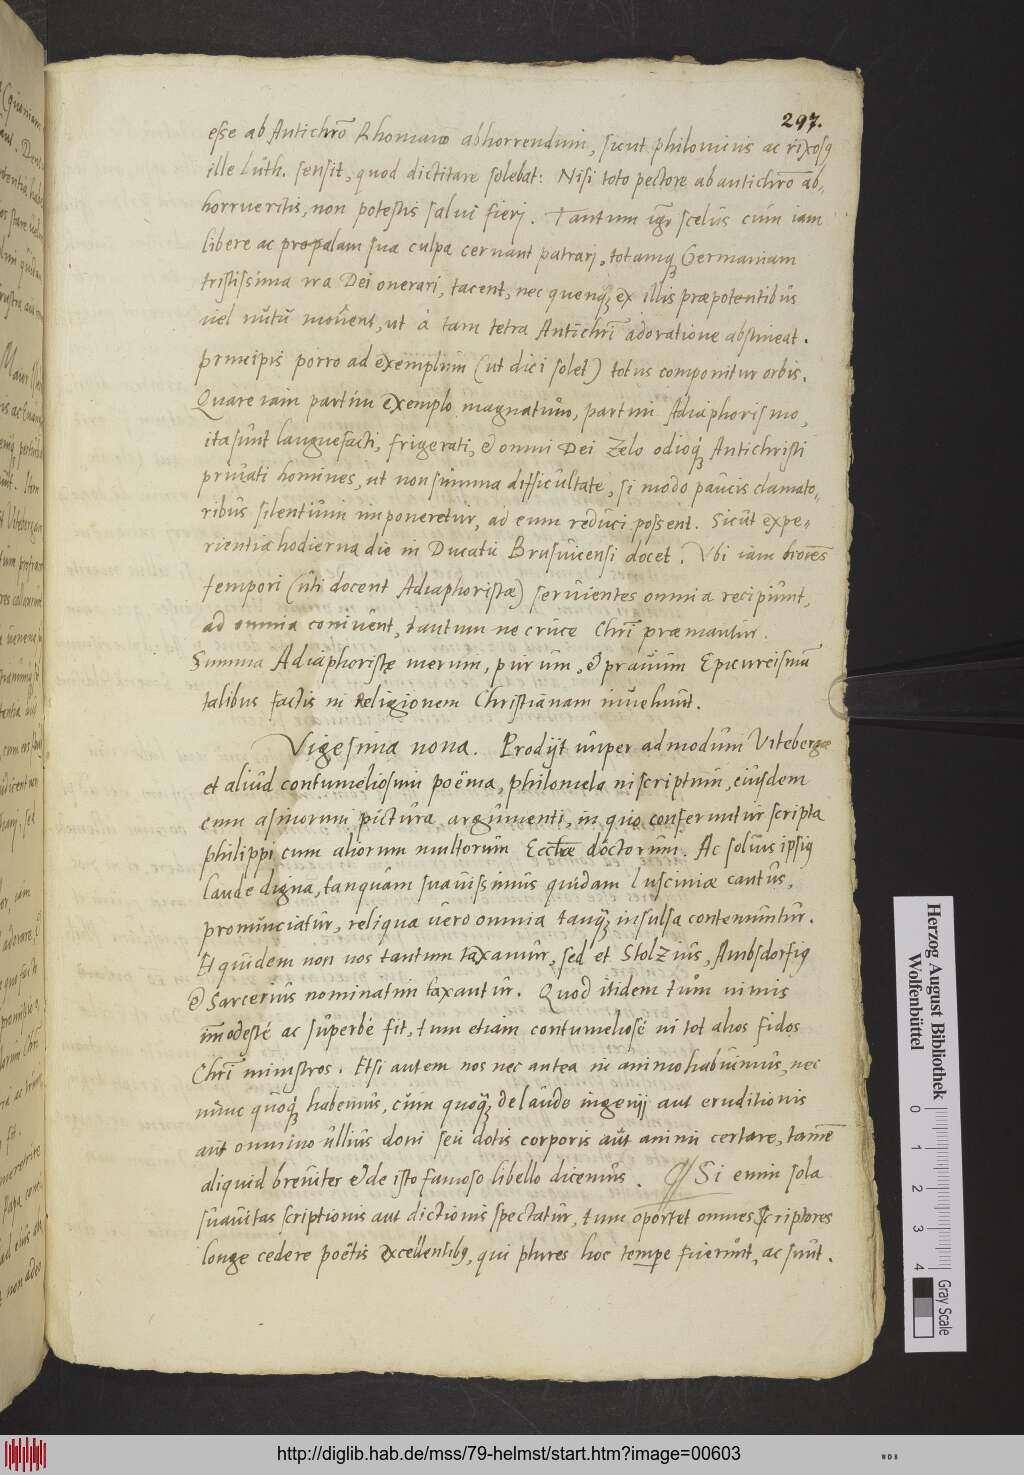 297.
esse ab Antichrō Rhomano abhorrendum, sicut philonicus ac rixosꝯ
ille Luth. sensit, quod dictitare solebat: Nisi toto pectore ab antichrō ab-
horrueritis, non potestis salui fierj. Tantum igr̄ scelus cum iam
libere ac propalam sua culpa cernant patrarj, totamqꝫ Germaniam
tristissima ira Dei onerari, tacent, nec quenqꝫ ex illis præpotentibus
vel nutu mouent, ut à tam tetra Antichrī adoratione abstineat.
principis porro ad exemplum (ut dici solet) totus componitur orbis.
Quare iam partim exemplo magnatum, partim Adiaphorismo,
ita sunt languefacti, frigerati, & omni Dei Zelo odioqꝫ Antichristi
priuati homines, ut non summa difficultate, si modo paucis clamato-
ribus silentium imponeretur, ad eum reduci possent. Sicut expe-
rientia hodierna die in Ducatu Brusuicensi docet. Vbi iam hoīes
tempori (uti docent Adiaphoristæ) seruientes omnia recipiunt,
ad omnia coniuent, tantum ne cruce Chrī præmantur.
Summa Adiaphoristę merum, purum, & prauum Epicureismū
talibus factis in Religionem Christianam inuehunt.
Vigesima nona. Prodijt nuper admodum Vitebergæ
et aliud contumeliosum poëma, philomela inscriptum, eiusdem
cum asinorum pictura argumenti, in quo conferuntur scripta
philippi cum aliorum multorum Ecclīæ doctorum. Ac solius ipsiꝯ
laude digna, tanquam suauissimus quidam lusciniæ cantus,
pronunciatur, reliqua uero omnia tanqꝫ insulsa contemnuntur.
Et quidem non nos tantum taxamur, sed et Stolzius, Ambsdorfiꝯ
& Sarcerius nominatim taxantur. Quod itidem tum nimis
im̄odestè ac superbè fit, tum etiam contumeliosè in tot alios fidos
Chrī ministros. Etsi autem nos nec antea in animo habuimus, nec
nunc quoqꝫ habemus, cum quoqꝫ de laude ingenij aut eruditionis
aut omnino ullius doni seu dotis corporis aut animi certare, tamē
aliquid breuiter & de isto famoso libello dicemus. Si enim sola
suauitas scriptionis aut dictionis spectatur, tum oportet omnes scriptores
longe cedere poëtis excellentibꝯ, qui plures hoc tempe fuerunt, ac sunt.
Herzog August Bibliothek
Wolfenbüttel
0 1 2 3 4
Gray Scale
http://diglib.hab.de/mss/79-helmst/start.htm?image=00603